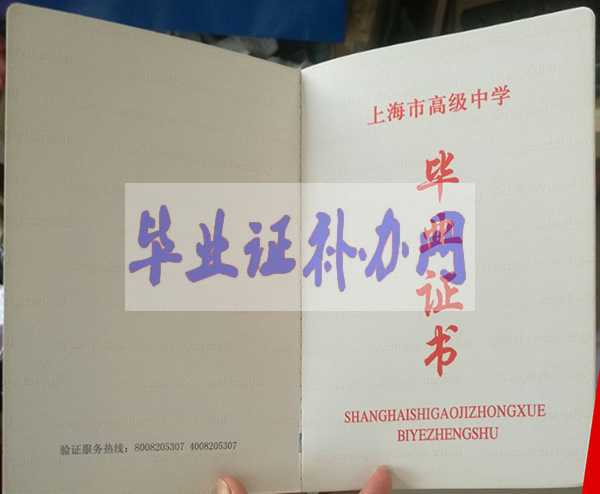 验证服务热线：8008205307 4008205307
上海市高级中学
毕业证书
SHANGHAISHIGAOJIZHONGXUE
BIYEZHENGSHU
毕业证补办网